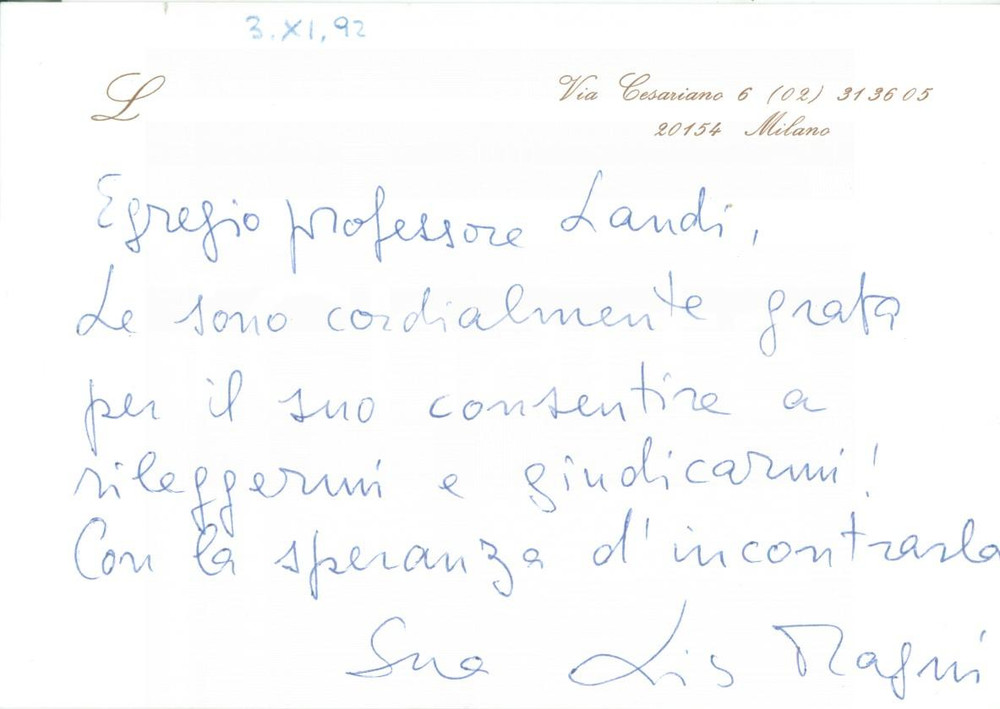 3.XI.92
L
Via Cesariano 6 (02) 313605
20154 Milano
Egregio professore Landi,
Le sono cordialmente grata
per il suo consentire a
rileggermi e giudicarmi!
Con la speranza d'incontrarla
Sua Lis Magni